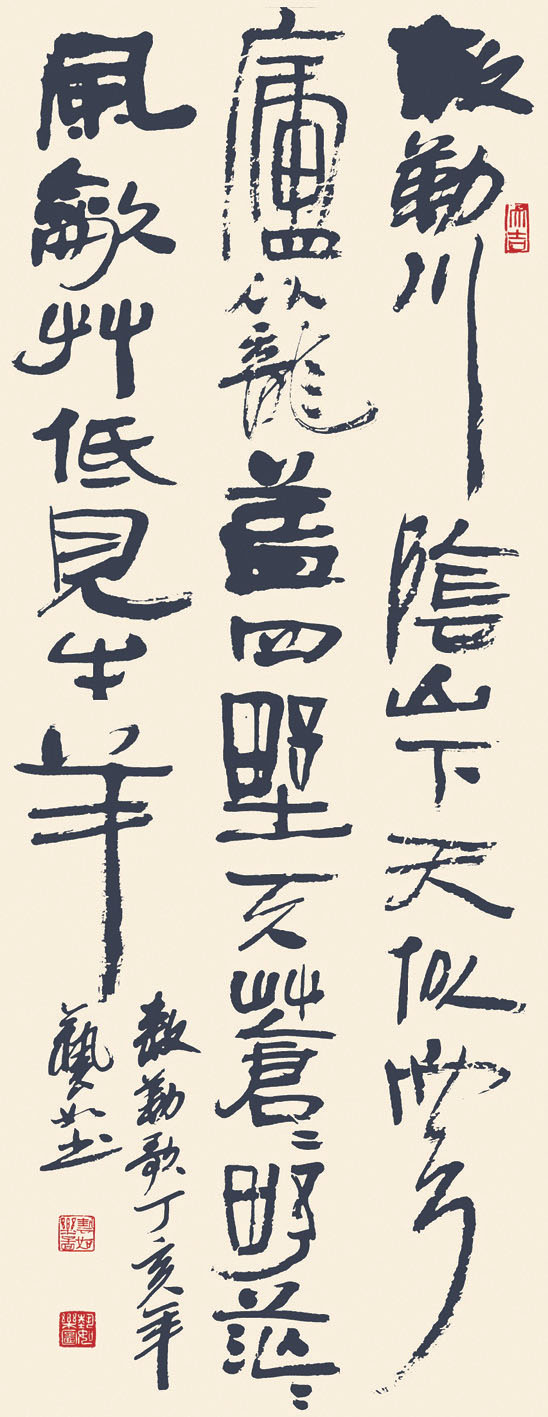 敕勒川陰山下天似穹
廬籠蓋四墅天蒼〻野茫〻
風龡艸低見牛羊
敕勒歌丁亥年
藝